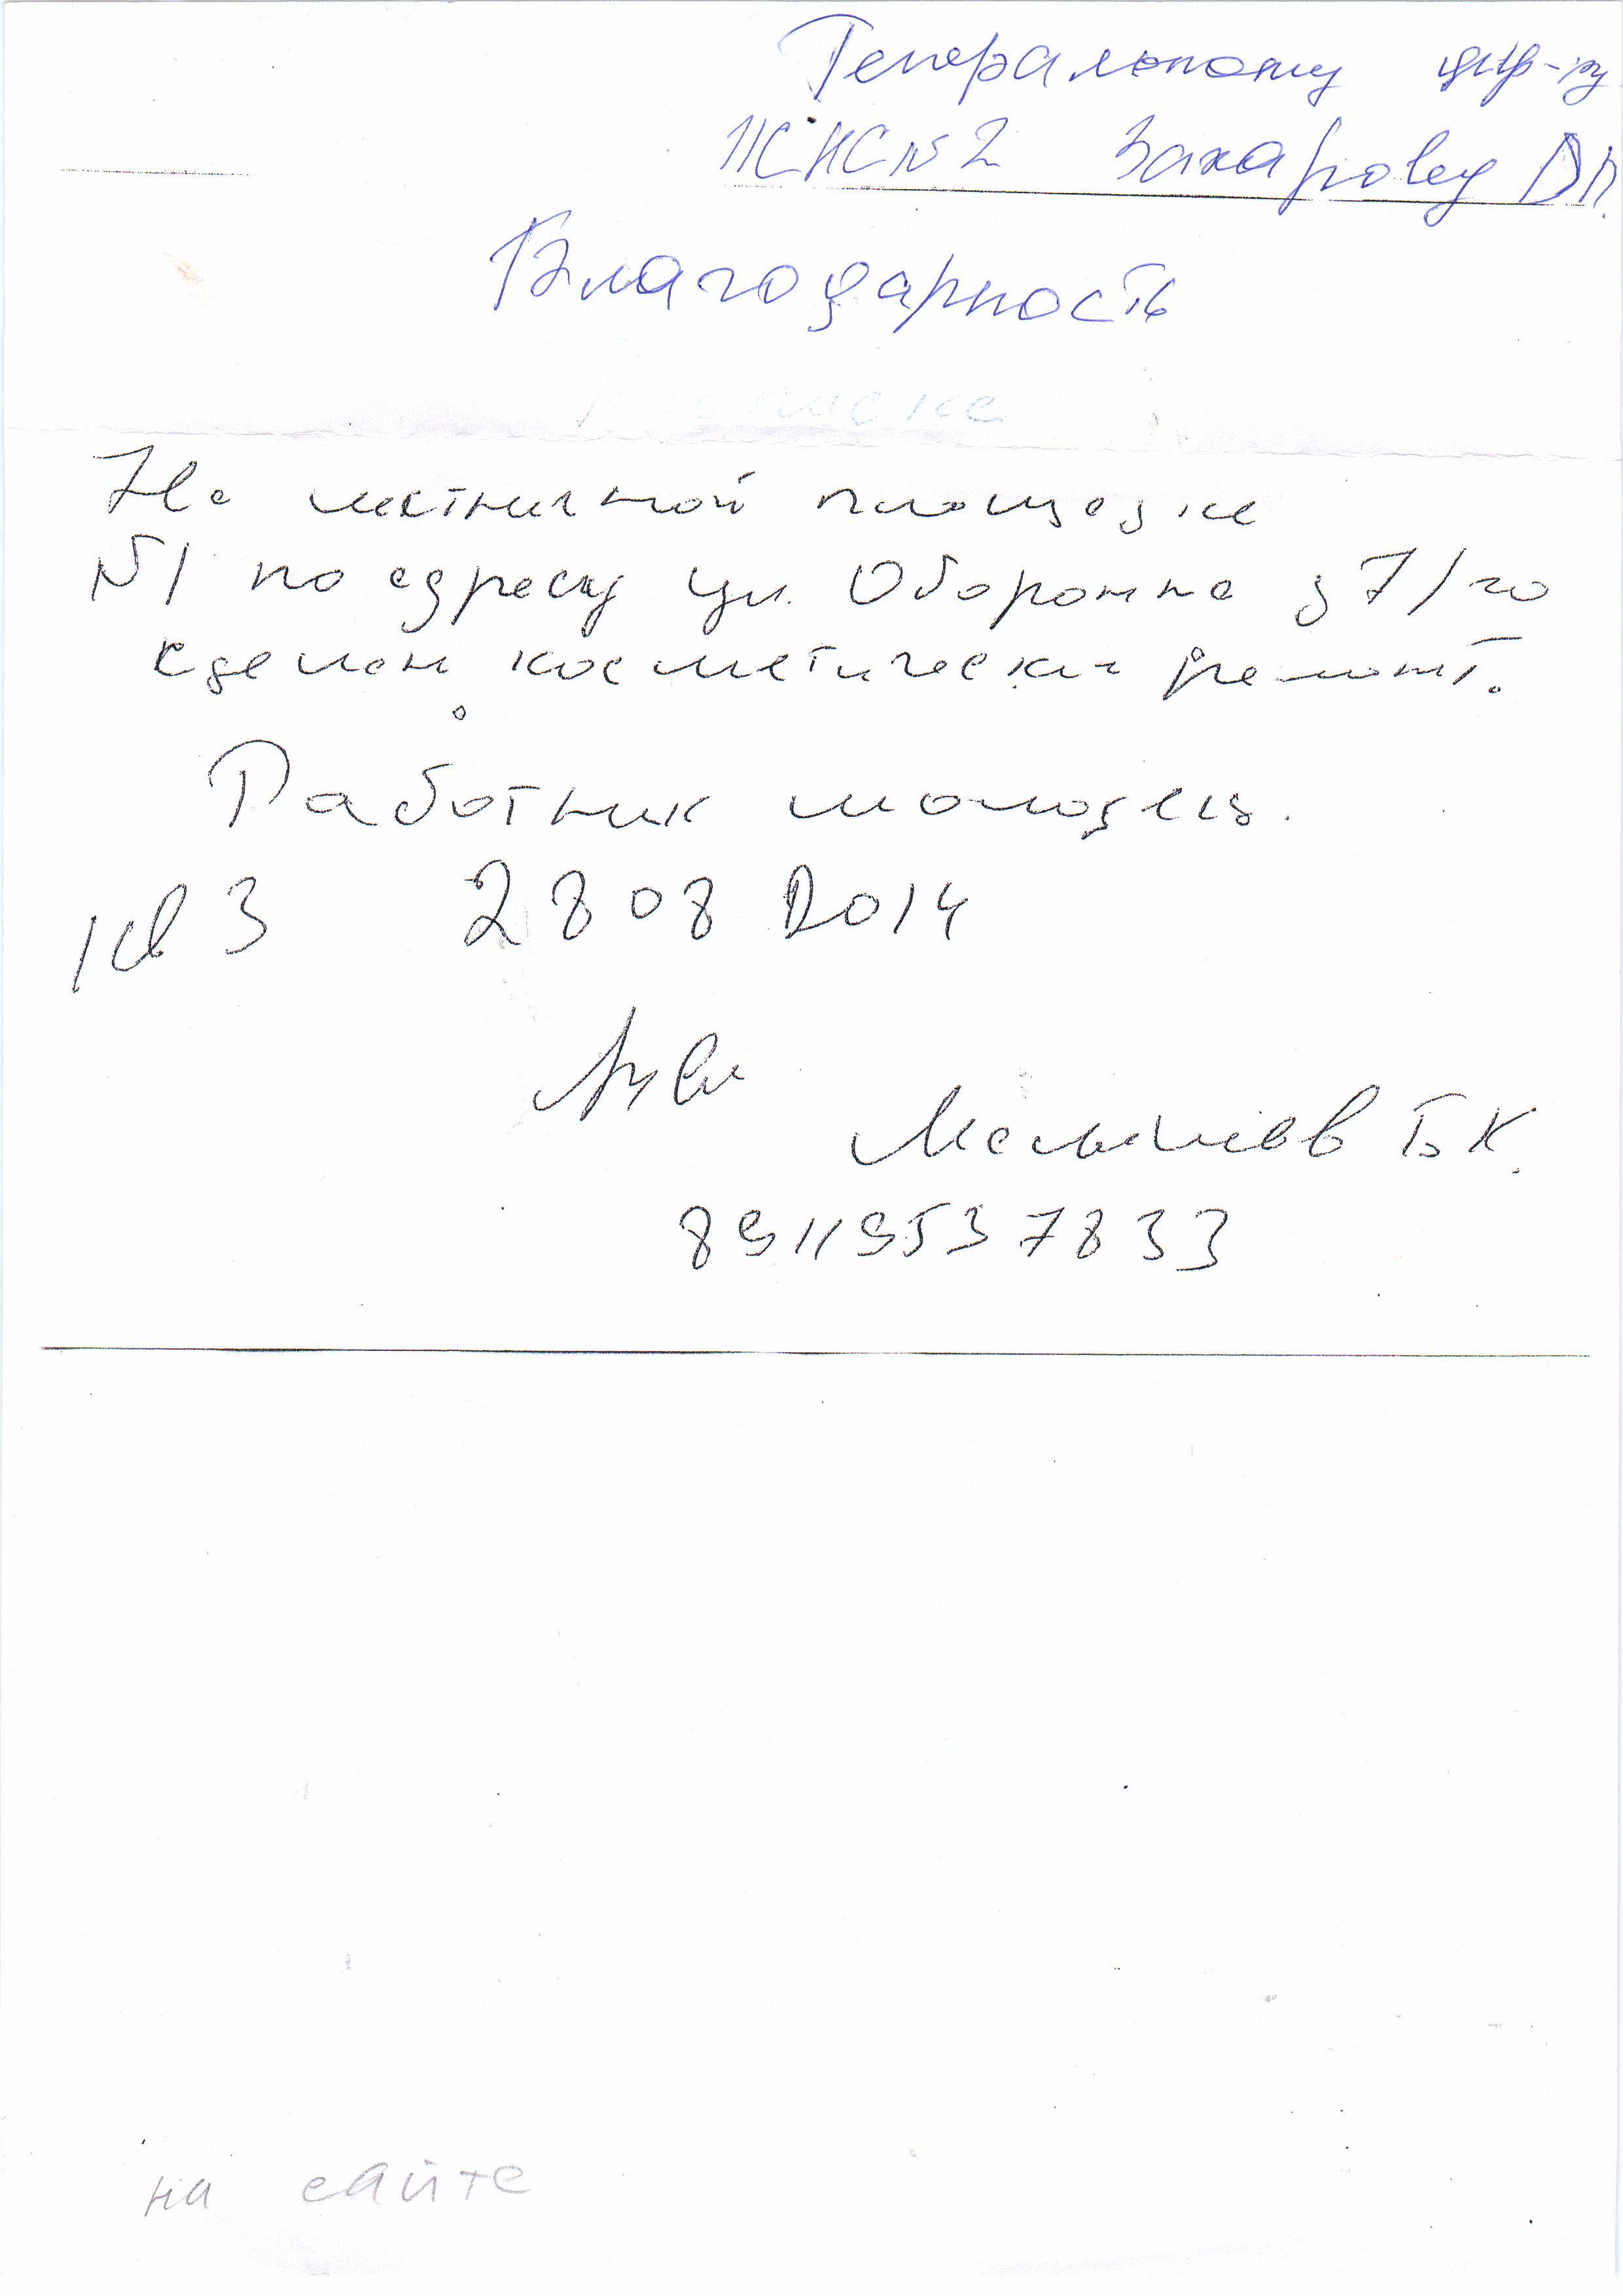 Генеральному дир-ру
ЖКС №2 Захарову Д.П.
Благодарность
На лестничной площадке
№1 по адресу ул. Оборонная д 7/20
сделан косметически ремонт.
Работник молодец.
кв 3 28 08 2014
Б К.
89119537833
на сайте